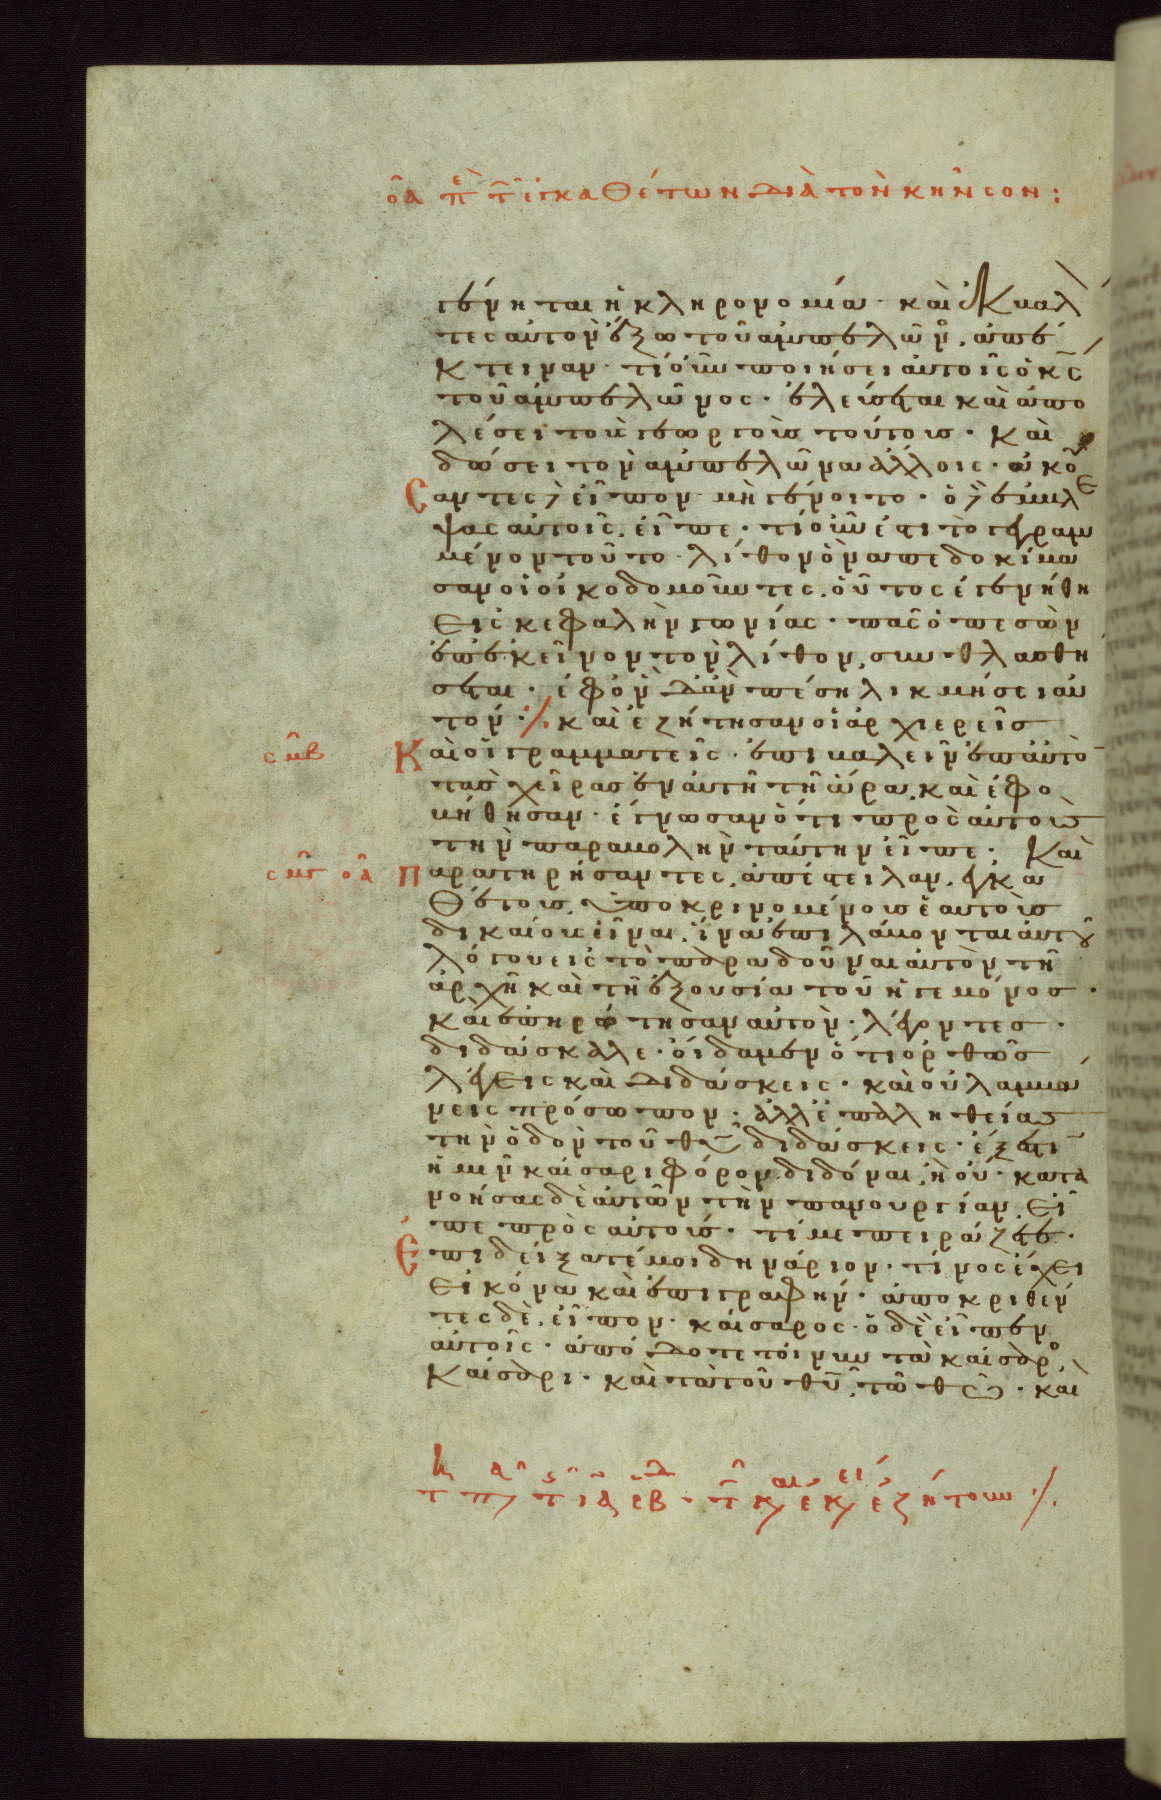 οα πε τ ἐγκαθέτων διὰ τὸν κῆνσον:
γένηται ἡ κληρονομία. καὶ ἐκβαλ
τες αὐτὸν ἔξω τοῦ ἀμπελῶν, ἀπέ
κτειναν. τί οὖν ποιήσει αὐτοῖς ὁ κς
τοῦ ἀμπελῶνος. ἐλεύσεται καὶ ἀπο
λέσει τοὺς γεωργοὺς τούτους. καὶ
δώσει τὸν ἀμπελῶνα ἄλλοις. ἀκού
σαντες δὲ εἶπον μὴ γένοιτο. ὁ δὲ ἐμβλέ
ψας αὐτοῖς, εἶπε. τί οὖν ἐστι τὸ γεγραμ
μένον τοῦτο. λίθον ὃν ἀπεδοκίμα
σαν οἱ οἰκοδομοῦντες. οὗτος ἐγενήθη
εἰς κεφαλὴν γωνίας. πᾶς ὁ πεσὼν
ἐπ' ἐκεῖνον τὸν λίθον, συνθλασθή
σεται. ἐφ' ὃν δ' ἂν πέσῃ λικμήσει αὐ
τόν. καὶ ἐζήτησαν οἱ ἀρχιερεῖς
σμβ καὶ οἱ γραμματεῖς. ἐπιβαλεῖν ἐπ' αὐτὸ
τὰς χεῖρας ἐν αὐτῇ τῇ ὥρα, καὶ ἐφο
βήθησαν. ἔγνωσαν ὅτι πρὸς αὐτοὺς
τὴν παραβολὴν ταύτην εἶπε. Καὶ
σμγ οα παρατηρήσαντες, ἀπέστειλαν, ἐγκα
θέτους, ὑποκρινομένους ἑαυτοὺς
δικαίους εἶναι. ἵνα ἐπιλάβονται αὐτοῦ
λόγου εἰς τὸ παραδοῦναι αὐτὸν τῇ
ἀρχῇ καὶ τῇ ἐξουσία τοῦ ἡγεμόνος.
καὶ ἐπηρώτησαν αὐτὸν. λέγοντες.
διδάσκαλε. οἴδαμεν ὅτι ὀρθῶς
λέγεις καὶ διδάσκεις. καὶ οὐ λαμβά
νεις πρόσωπον. ἀλλ' ἐπ' ἀληθείας
τὴν ὁδὸν τοῦ θυ διδάσκεις. ἔξεστι
ἡμῖν καίσαρι φόρον διδόναι, ἢ οὔ. κατα
νοήσας δὲ αὐτῶν τὴν πανουργίαν. εἶ
πε πρὸς αὐτούς. τί με πειράζετε.
ἐπιδείξατέ μοι δηνάριον. τίνος ἔχει
εἰκόνα καὶ ἐπιγραφήν. ἀποκριθέν
τες δὲ, εἶπον. καίσαρος. ὁ δὲ εἶπεν
αὐτοῖς. ἀπόδοτε τοίνυν τὰ καίσαρο
καίσαρι. καὶ τὰ τοῦ θυ, τῶ θῶ. καὶ